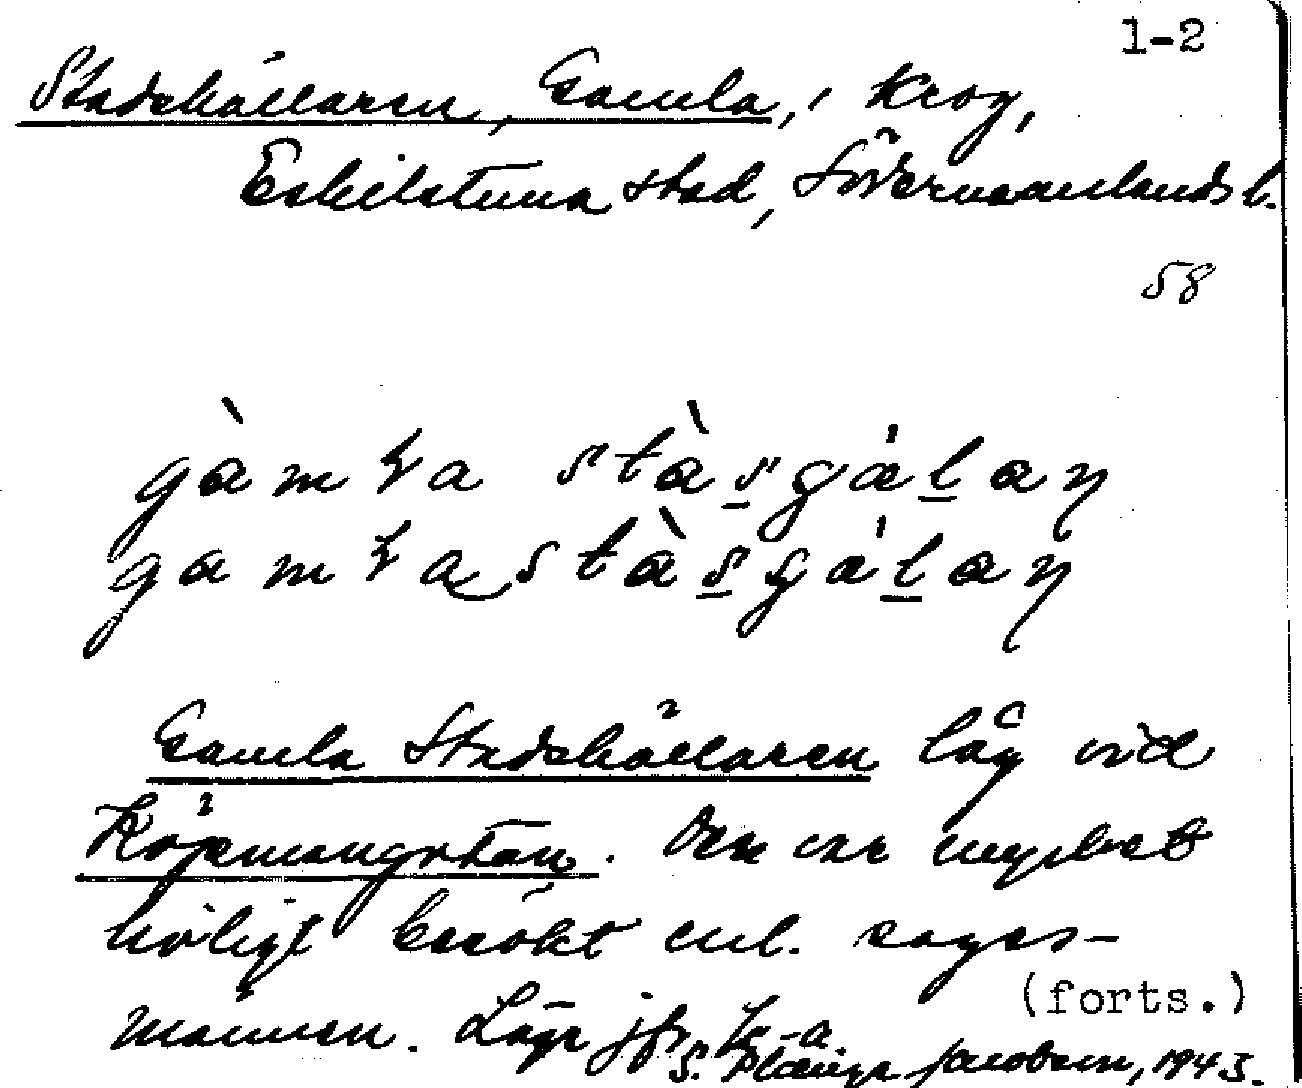 1-2
Stadskällaren, Gamla, ; Krog,
Eskilstuna stad, Södermanlands l.
58
gàmɫa stàsgä́lan
gamɫa stàsgä́lan
Gamla Stadskällaren låg vid
Köpmangatan. Den var mycket
livligt besökt enl. sages-
männen. Läge jfr
(forts.)
S. Jacobson, 1943.